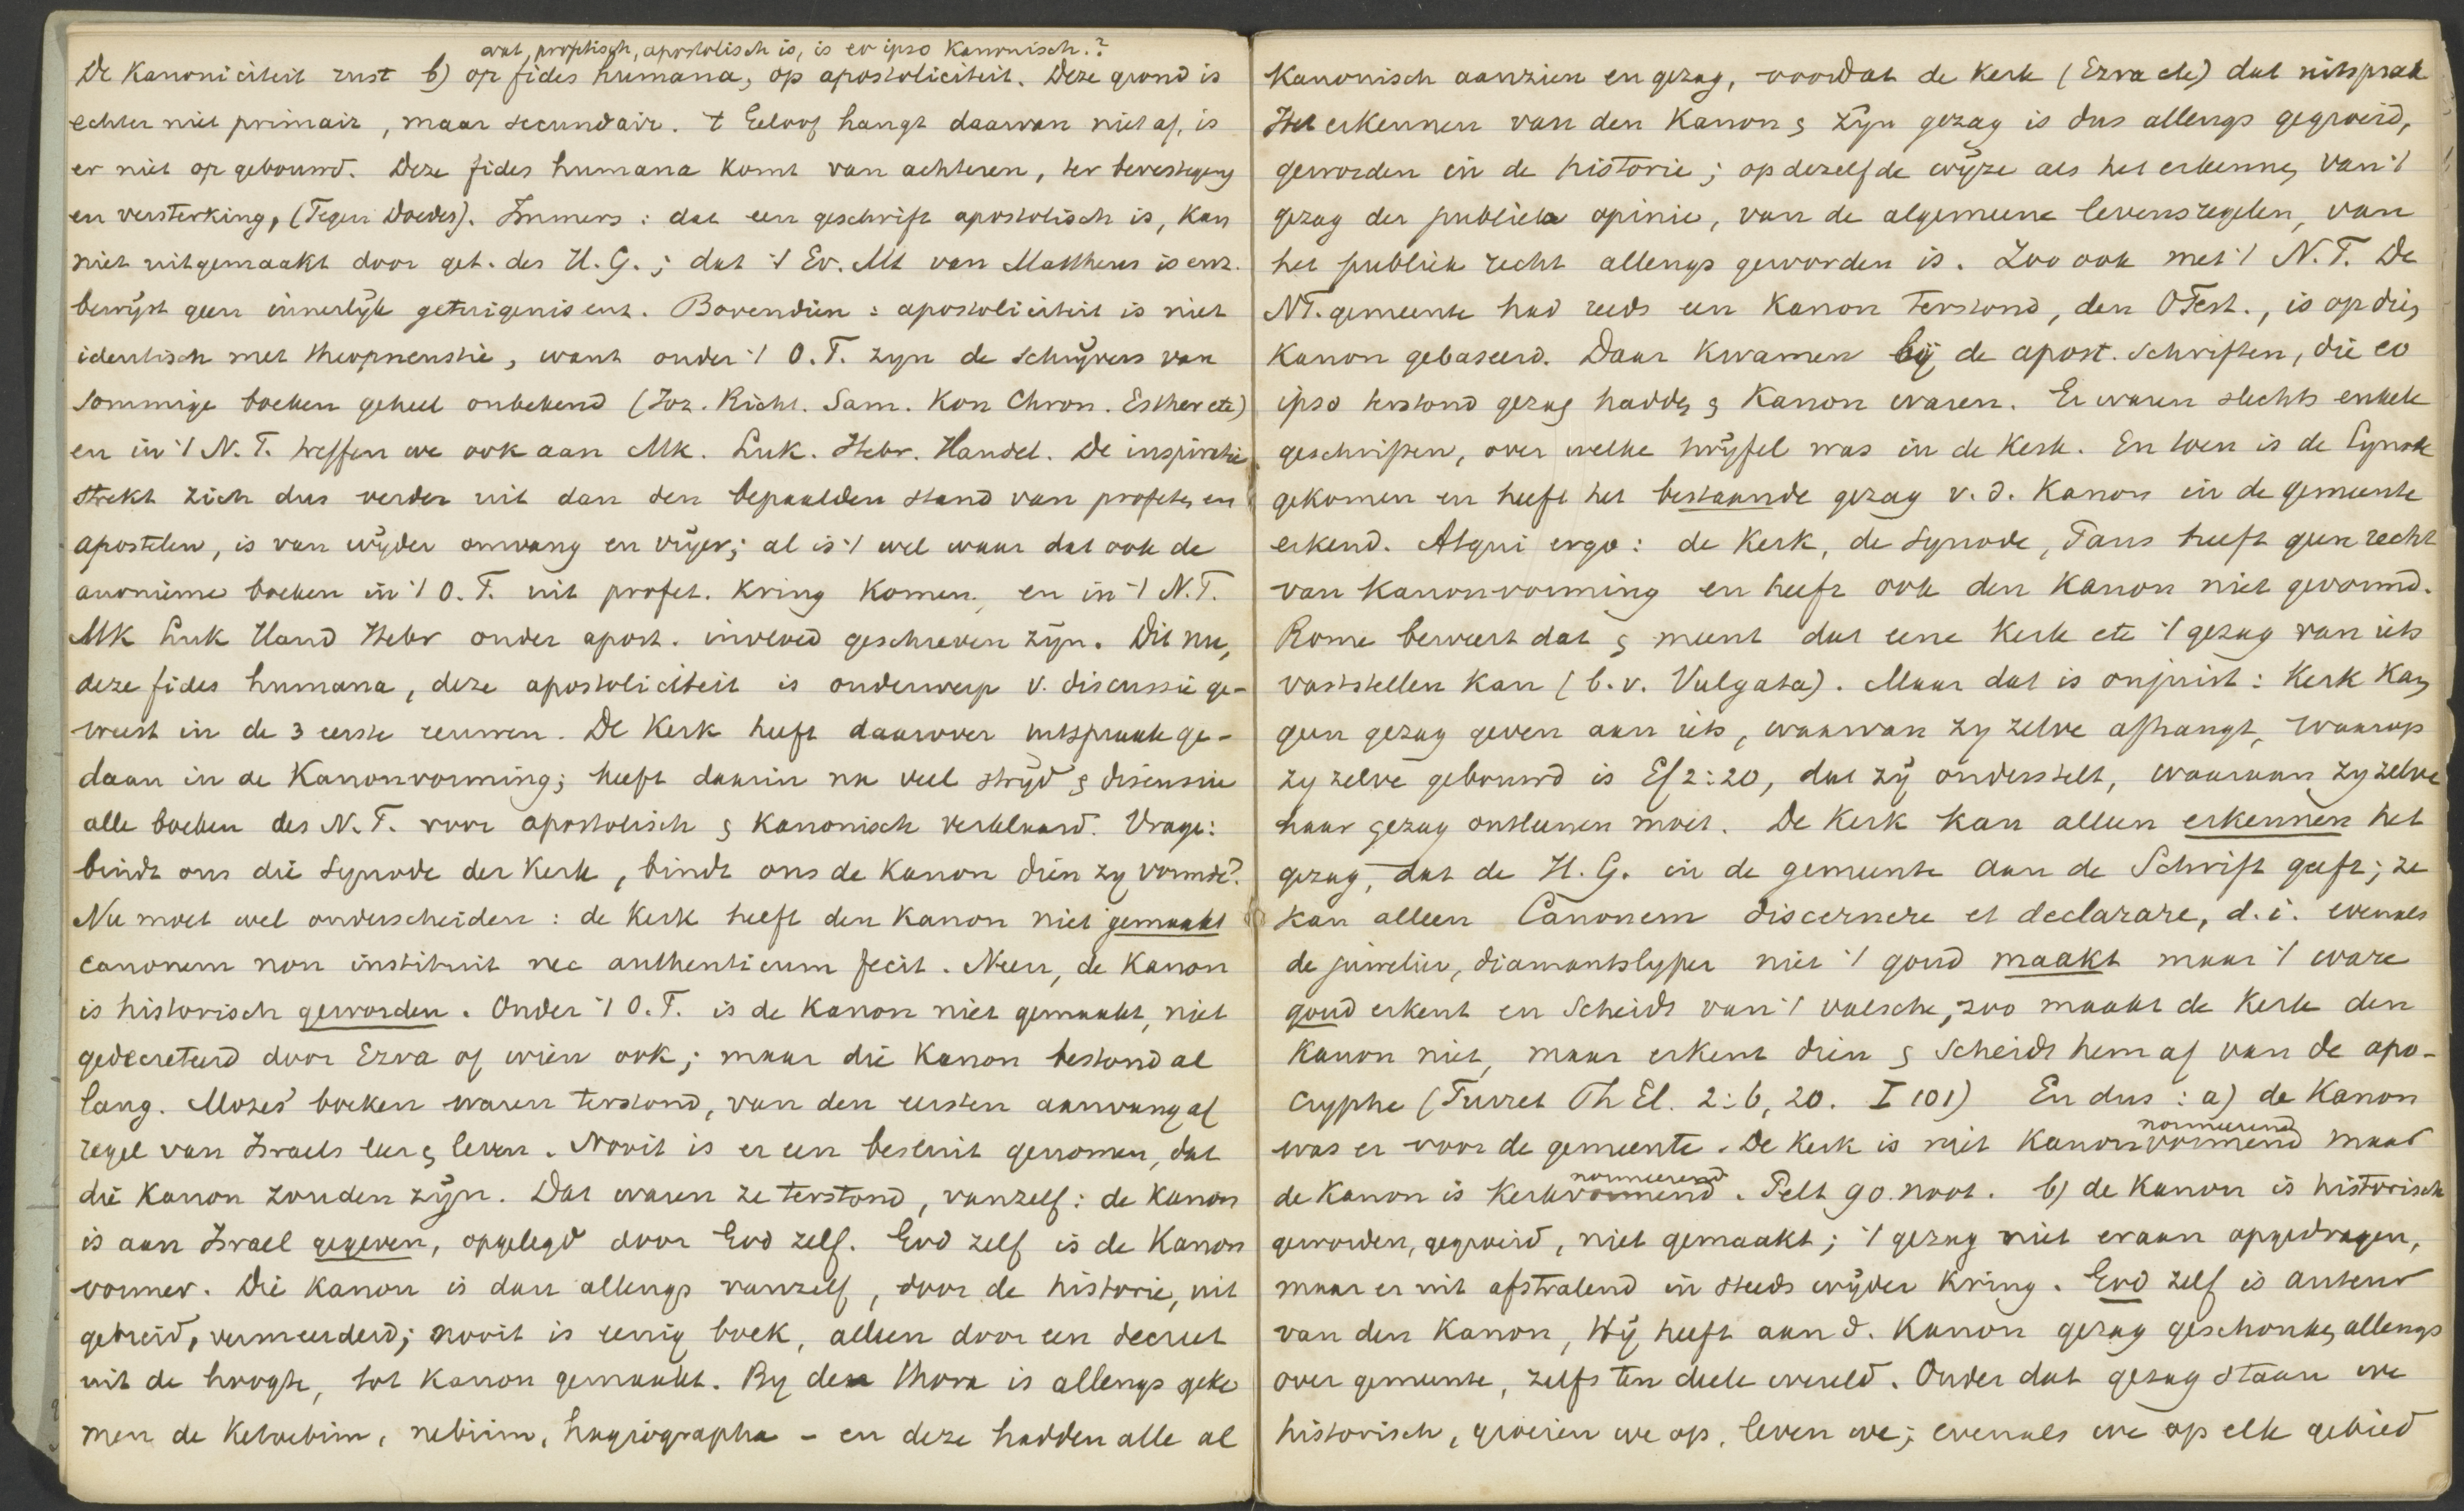 wat profetisch, apostolisch is, is eo ipso Kanonisch.?
De Kanoniciteit rust b) op fides humana, op apostoliciteit. Deze grond is
echter niet primair, maar secundair. 't Geloof hangt daarvan niet af, is
er niet op gebouwd. Deze fides humana komt van achteren, ter bevestiging
en versterking, (Tegen Doedes). Immers: dat een geschrift apostolisch is, kan
niet uitgemaakt door get. des H. G.; dat 't Ev. Mt van Mattheus is enz.
bewijst geen innerlijk getuigenis enz. Bovendien: apostoliciteit is niet
identisch met theopneustie, want onder 't O. T. zyn de schrijvers van
sommige boeken geheel onbekend (Joz. Richt. Sam. Kon Chron. Esther etc)
en in 't N. T. treffen we ook aan Mk. Luk. Hebr. Handel. De inspiratie
strekt zich dus verder uit dan den bepaalden stand van profeten en
apostelen, is van wijder omvang en vrijer; al is 't wel waar dat ook de
anonieme boeken in 't O. T. uit profet. kring komen, en in 't N. T.
Mk Luk Hand Hebr onder apost. invloed geschreven zijn. Dit nu,
deze fides humana, deze apostoliciteit is onderwerp v. discussie ge-
weest in de 3 eerste eeuwen. De Kerk heeft daarover uitspraak ge-
daan in de Kanonvorming; heeft daarin na veel strijd & discussie
alle boeken des N. T. voor apostolisch & kanonisch verklaard. Vrage:
bindt ons die Synode der Kerk, bindt ons de Kanon dien zy vormde?
Nu moet wel onderscheiden: de Kerk heeft den Kanon niet gemaakt
canonem non instituit nec authenticum fecit. Neen, de Kanon
is historisch geworden. Onder 't O. T. is de Kanon niet gemaakt, niet
gedecreteerd door Ezra of wien ook; maar die Kanon bestond al
lang. Mozes' boeken waren terstond, van den eersten aanvang af
regel van Israels leer & leven. Nooit is er een besluit genomen, dat
die Kanon zouden zijn. Dat waren ze terstond, vanzelf: de Kanon
is aan Israel gegeven, opgelegd door God zelf. God zelf is de Kanon
vormer. Die Kanon is dan allengs vanzelf, door de historie, uit
gebreid, vermeerderd; nooit is eenig boek, alleen door een decreet
uit de hoogte, tot Kanon gemaakt. By den thora is allengs geko
men de Ketoebim, nebiim, hagiographa – en deze hadden alle al
Kanonisch aanzien en gezag, voordat de Kerk (Ezra etc) dat uitsprak
Het erkennen van den Kanon & zijn gezag is dus allengs gegroeid,
geworden in de historie; op dezelfde wijze als het erkennen van 't
gezag der publieke opinie, van de algemeene levensregelen, van
het publiek recht allengs geworden is. Zoo ook met 't N. T. De
NT. gemeente had reeds een Kanon terstond, den OTest., is op dien
Kanon gebaseerd. Daar kwamen bij de apost. schriften, die eo
ipso terstond gezag hadden & Kanon waren. Er waren slechts enkele
geschriften, over welke twijfel was in de Kerk. En toen is de Synode
gekomen en heeft het bestaande gezag v. d. Kanon in de gemeente
erkend. Atqui ergo: de Kerk, de Synode, Paus heeft geen recht
van Kanonvorming en heeft ook den Kanon niet gevormd.
Rome beweert dat & meent dat eene Kerk etc 't gezag van iets
vaststellen kan (b. v. Vulgata). Maar dat is onjuist: Kerk kan
geen gezag geven aan iets, waarvan zy zelve afhangt, waarop
zy zelve gebouwd is Ef 2:20, dat zij onderstelt, waaraan zy zelve
haar gezag ontleenen moet. De Kerk kan alleen erkennen het
gezag, dat de H. G. in de gemeente aan de Schrift geeft; ze
kan alleen Canonem discernere et declarare, d. i. evenals
de juwelier, diamantslyper niet 't goud maakt maar 't ware
goud erkent en scheidt van 't valsche, zoo maakt de Kerk den
Kanon niet, maar erkent dien & scheidt hem af van de apo-
cryphe (Turret Th El. 2:6, 20. I 101) En dus: a) de Kanon
was er voor de gemeente. De Kerk is niet Kanonvormend maar
normeerend
de Kanon is Kerkvormend. Pelt 90. noot. b) de Kanon is historisch
normeerend
geworden, gegroeid, niet gemaakt; 't gezag niet eraan opgedragen,
maar er uit afstralend in steeds wijder kring. God zelf is auteur
van den Kanon, Hij heeft aan d. Kanon gezag geschonken, allengs
over gemeente, zelfs ten deele wereld. Onder dat gezag staan we
historisch, groeien we op, leven we; evenals we op elk gebied